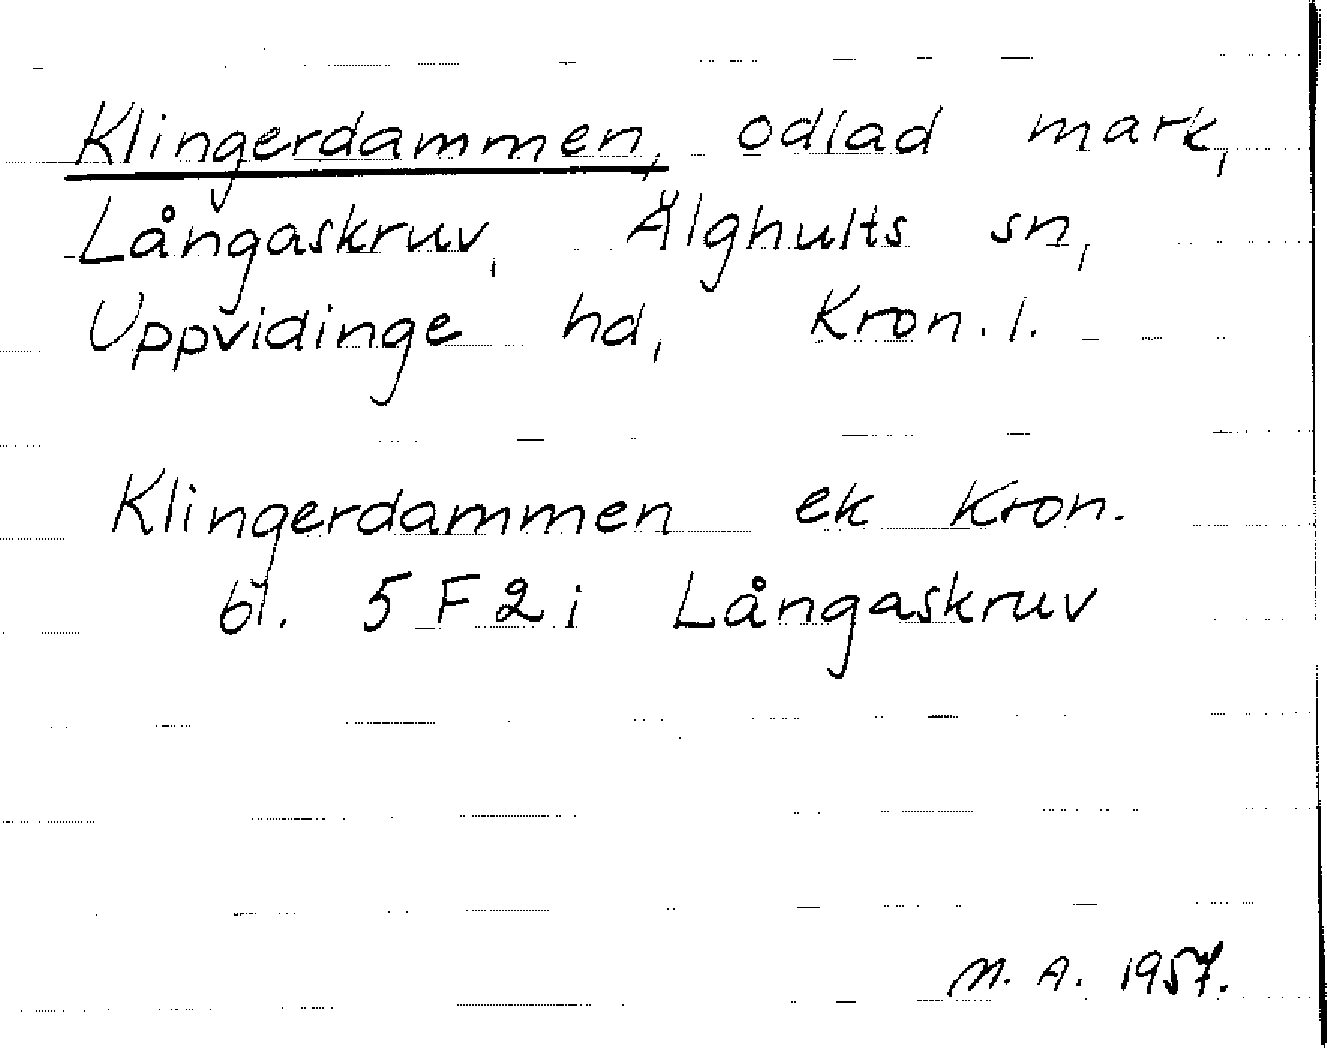 Klingerdammen, odlad mark,
Långaskruv, Älghults sn,
Uppvidinge hd, Kron. l.
Klingerdammen ek Kron.
bl. 5 F 2 i Långaskruv
M. A. 1957.